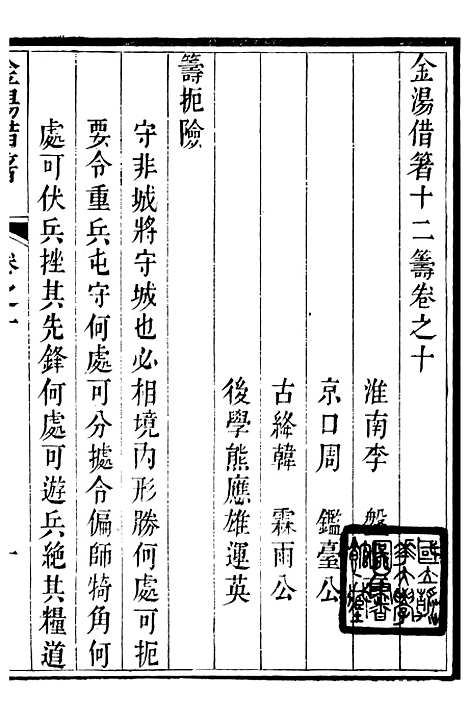 金湯借箸十二籌卷之十
淮南李 盤
京口周 鑑臺公
古絳韓 霖雨公
後學熊應雄運英
籌扼險
守非城將守城也必相境內形勝何處可扼
要令重兵屯守何處可分據令偏師犄角何
處可伏兵挫其先鋒何處可遊兵絶其糧道
金湯借箸
卷之十
一